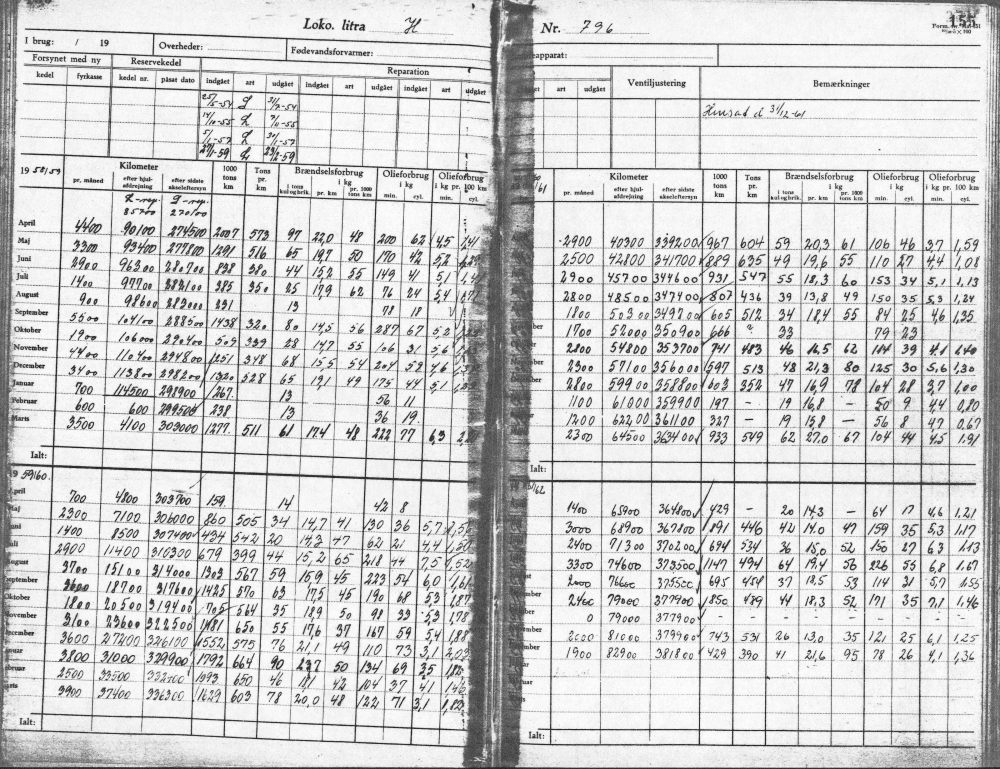 Loko. litra H
I brug: / 19
Overheder:
Fødevandsforvarmer:
Forsynet med ny
Reservekedel
Reparation
kedel fyrkasse kedel nr. påsat dato indgået art udgået indgået art udgået indgået art udgået
25/5-54 L
14/10-55 L 9/11-55
L
L 23/2-59
1958/59
Kilometer 1000 tons km Tons pr. km Brændselsforbrug i kg Olieforbrug i kg Olieforbrug i kg pr. 100 km
pr. måned efter hjulafdrejning efter sidste akseleftersyn i tons kul og brik. pr. km pr. 1000 tons km min. cyl. min. cyl.
85700 270100
April 4400 90100 274500 2007 573 97 22,0 48 200 62 4,5 1,41
Maj 3300 93400 277800 1291 516 65 19,7 50 170 42 5,2
Juni 2900 96300 280700 838 380 44 15,2 55 149 41 5,1
Juli 1400 97700 282100 385 350 25 17,9 62 76 24 5,4
August 900 98600 283000 231 13 78 18
September 5500 104100 288500 1438 320 80 14,5 56 287 67 5,2
Oktober 1900 106000 290400 509 339 28 14,7 55 106 31 5,6
November 4400 110400 294800 1251 348 68 15,5 54 204 52 4,6
December 3400 113800 298200 1320 528 65 19,1 49 175 44 5,1
Januar 700 114500 298900 267 13 56 11
Februar 600 600 299500 238 13 36 19
Marts 3500 4100 303000 1277 511 61 17,4 48 222 77 6,3
Ialt:
1959/60
April 700 4800 303700 159 14 42 8
Maj 2300 7100 306000 860 505 34 14,7 41 130 36 5,7
Juni 1400 8500 307400 434 542 20 14,3 47 62 21 4,4
Juli 2900 11400 310300 679 399 44 15,2 65 218 44 7,5 1,52
August 3700 15100 314000 1303 567 59 15,9 45 223 54 6,0 1,61
September 3600 18700 317600 1425 570 63 17,5 45 190 68 5,3 1,87
Oktober 1800 20500 319400 705 564 35 18,9 50 98 33 5,3 1,78
November 3100 23600 322500 1481 650 55 17,6 37 167 59 5,4 1,88
December 3600 27200 326100 1552 575 76 21,1 49 110 73 3,1 2,03
Januar 3800 31000 329900 1792 664 90 23,7 50 134 69 3,5 1,82
Februar 2500 33500 332400 1093 650 46 18,1 42 104 37 4,1 1,46
Marts 3900 37400 336300 1629 603 78 20,0 48 122 71 3,1 1,82
Ialt:
Nr. 796
155
eapparat:
Ventiljustering
Bemærkninger
Hensat d 31/12-61
/61
Kilometer 1000 tons km Tons pr. km Brændselsforbrug i kg Olieforbrug i kg Olieforbrug i kg pr. 100 km
pr. måned efter hjulafdrejning efter sidste akseleftersyn i tons kul og brik. pr. km pr. 1000 tons km min. cyl. min. cyl.
2900 40300 339200 967 604 59 20,3 61 106 46 3,7 1,59
2500 42800 341700 889 635 49 19,6 55 110 27 4,4 1,08
2900 45700 344600 931 547 55 18,3 60 153 34 5,1 1,13
2800 48500 347400 807 436 39 13,8 49 150 35 5,3 1,24
1800 50300 349200 605 512 34 18,4 55 84 25 4,6 1,35
1700 52000 350900 666 33 79 23
2800 54800 353700 741 483 46 16,5 62 114 39 4,1 1,40
2300 57100 356000 597 513 48 21,3 80 125 30 5,6 1,30
2800 59900 358800 603 352 47 16,9 78 104 28 3,7 1,00
1100 61000 359900 197 - 19 16,8 - 50 9 4,4 0,80
1200 62200 361100 327 - 19 15,8 - 56 8 4,7 0,67
2300 64500 363400 933 549 62 27,0 67 104 44 4,5 1,91
Ialt:
61/62
1400 65900 364800 429 - 20 14,3 - 64 17 4,6 1,21
3000 68900 367800 891 446 42 14,0 47 159 35 5,3 1,17
2400 71300 370200 694 534 36 15,0 52 150 27 6,3 1,13
3300 74600 373500 1147 494 64 19,4 56 226 55 6,8 1,67
2000 76600 375500 695 454 37 18,5 53 114 31 5,7 1,55
2400 79000 377900 850 489 44 18,3 52 171 35 7,1 1,46
0 79000 377900 - - - - - - - - -
2000 81000 379900 743 531 26 13,0 35 121 25 6,1 1,25
1900 82900 381800 429 390 41 21,6 95 78 26 4,1 1,36
Ialt: